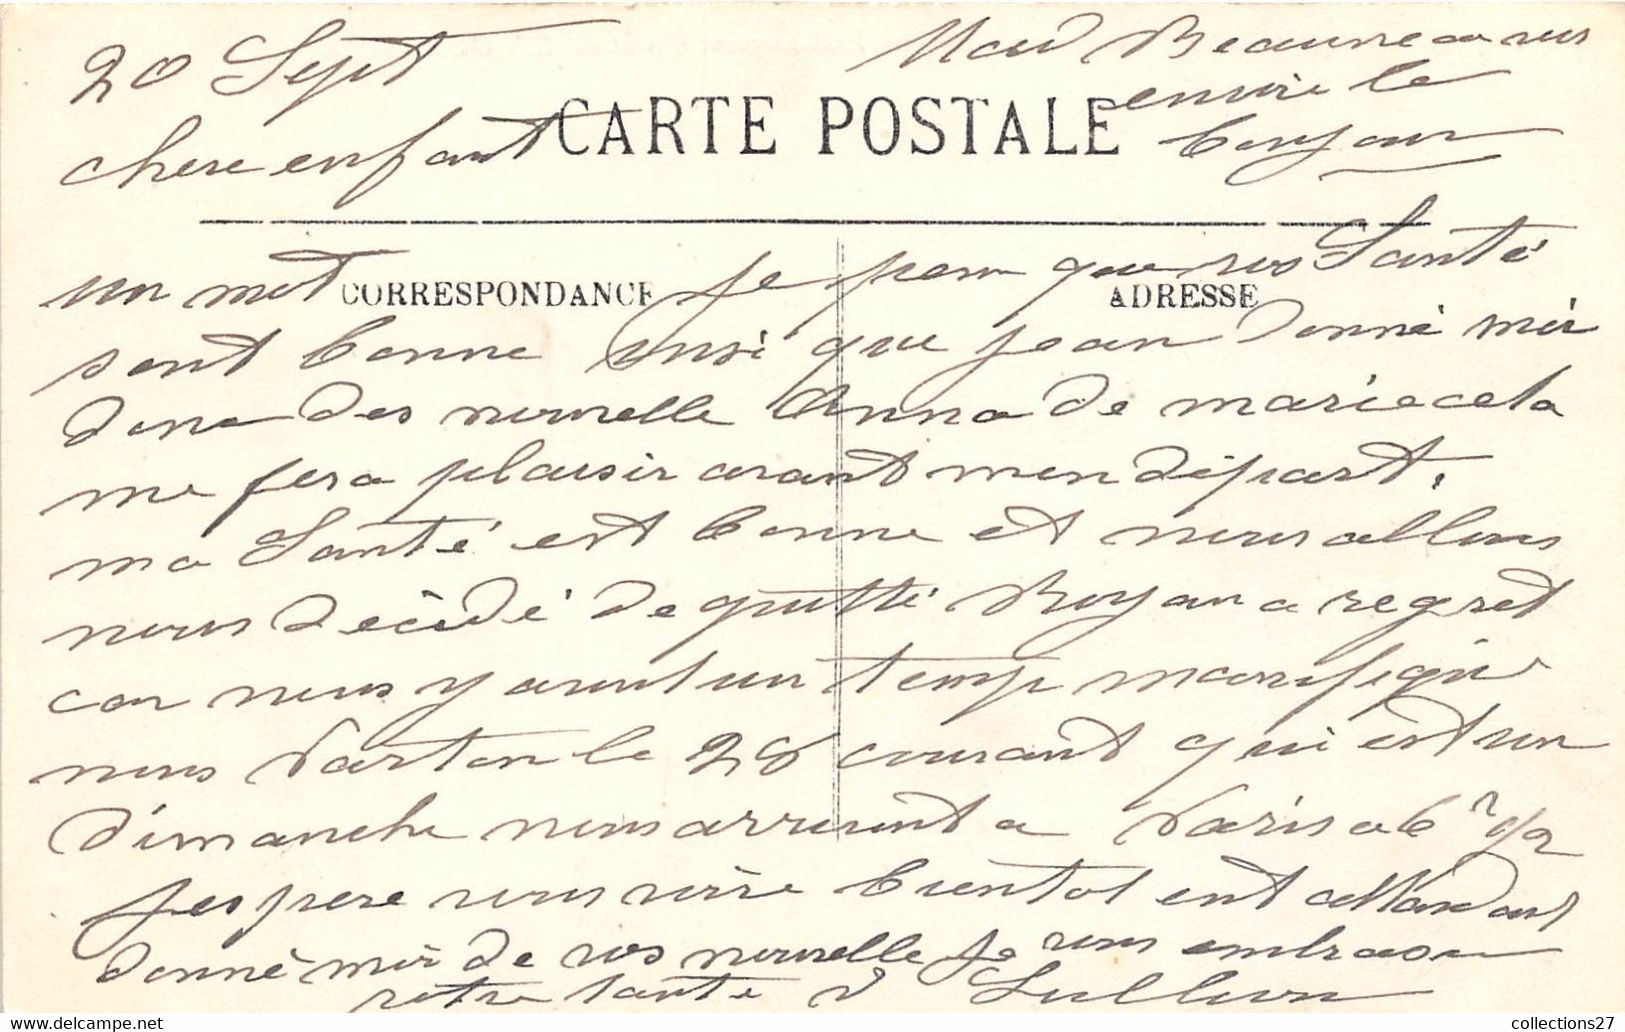 20 Sept
Mad Beauneau vous
envoie le
bonjour
CARTE POSTALE
chere enfant
CORRESPONDANCE
ADRESSE
un mot je pense que vos Santé
sont bonne ainsi que jean donné moi
donc des nouvelle Anna de marie cela
me fera plaisir avant mon départ.
ma Santé est bonne et nous allons
nous décidé de quitté Royan a regret
car nous y avont un temp manifique
nous parton le 28 courant qui est un
dimanche nous arrivont a Paris a 6 h 1/2
jespere vous voire bientot ent attendant
donné moi de vos nouvelle je vous embrasse
votre tante
collections27